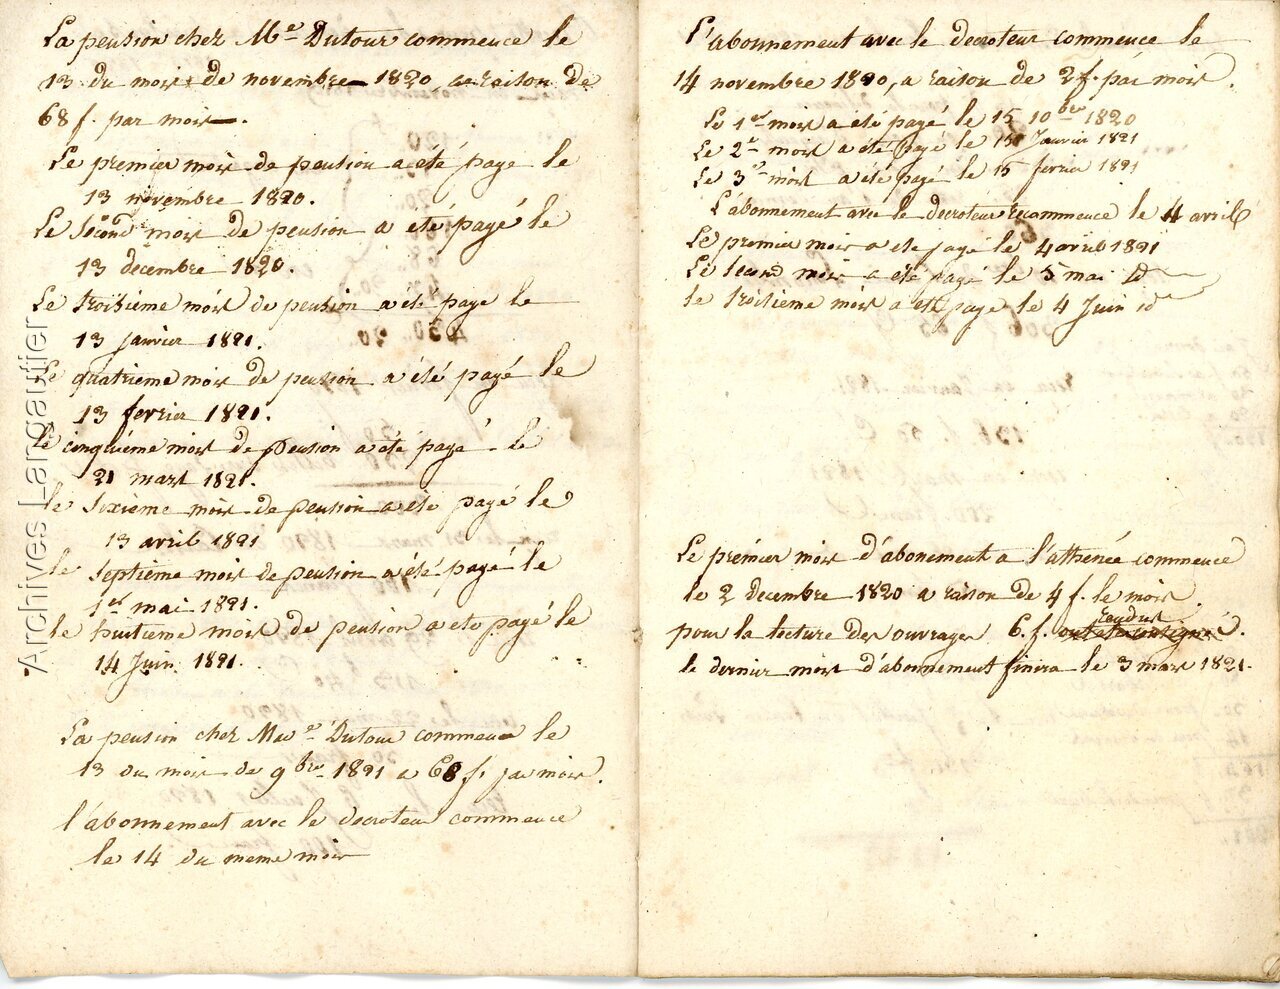 La pension chez Me Dutour commence le
13 du mois de novembre 1820 a raison de
68 f. par mois.
Le premier mois de pension a eté payé le
13 novembre 1820.
Le second mois de pension a été payé le
13 decembre 1820.
Le troisième mois de pension a été payé le
13 janvier 1821.
Le quatrieme mois de pension a été payé le
13 fevrier 1821.
le cinquieme mois de pension a été payé le
21 mars 1821.
le sixième mois de pension a eté payé le
13 avril 1821
le septième mois de pension a été payé le
1er mai 1821.
le huitième mois de pension a eté payé le
14 Juin 1821.
La pension chez Me Dutour commence le
13 du mois de 9bre 1821 a 68 f. par mois.
l'abonnement avec le decroteur commence
le 14 du meme mois
L'abonnement avec le decroteur commence le
14 novembre 1820, a raison de 2 f. par mois.
Le 1er mois a eté payé le 15 10bre 1820
Le 2e mois a été payé le 15 Janvier 1821
Le 3e mois a été payé le 15 fevrier 1821
L'abonnement avec le decroteur recommence le 4 avril
Le premier mois a eté payé le 4 avril 1821
Le second mois a été payé le 5 mai id
le troisième mois a eté payé le 4 Juin id
Le premier mois d'abonement a l'athenée commence
le 2 decembre 1820 a raison de 4 f. le mois
pour la lecture des ouvrages 6. f. rendus
le dernier mois d'abonnement finira le 3 mars 1821.
Archives Langautier